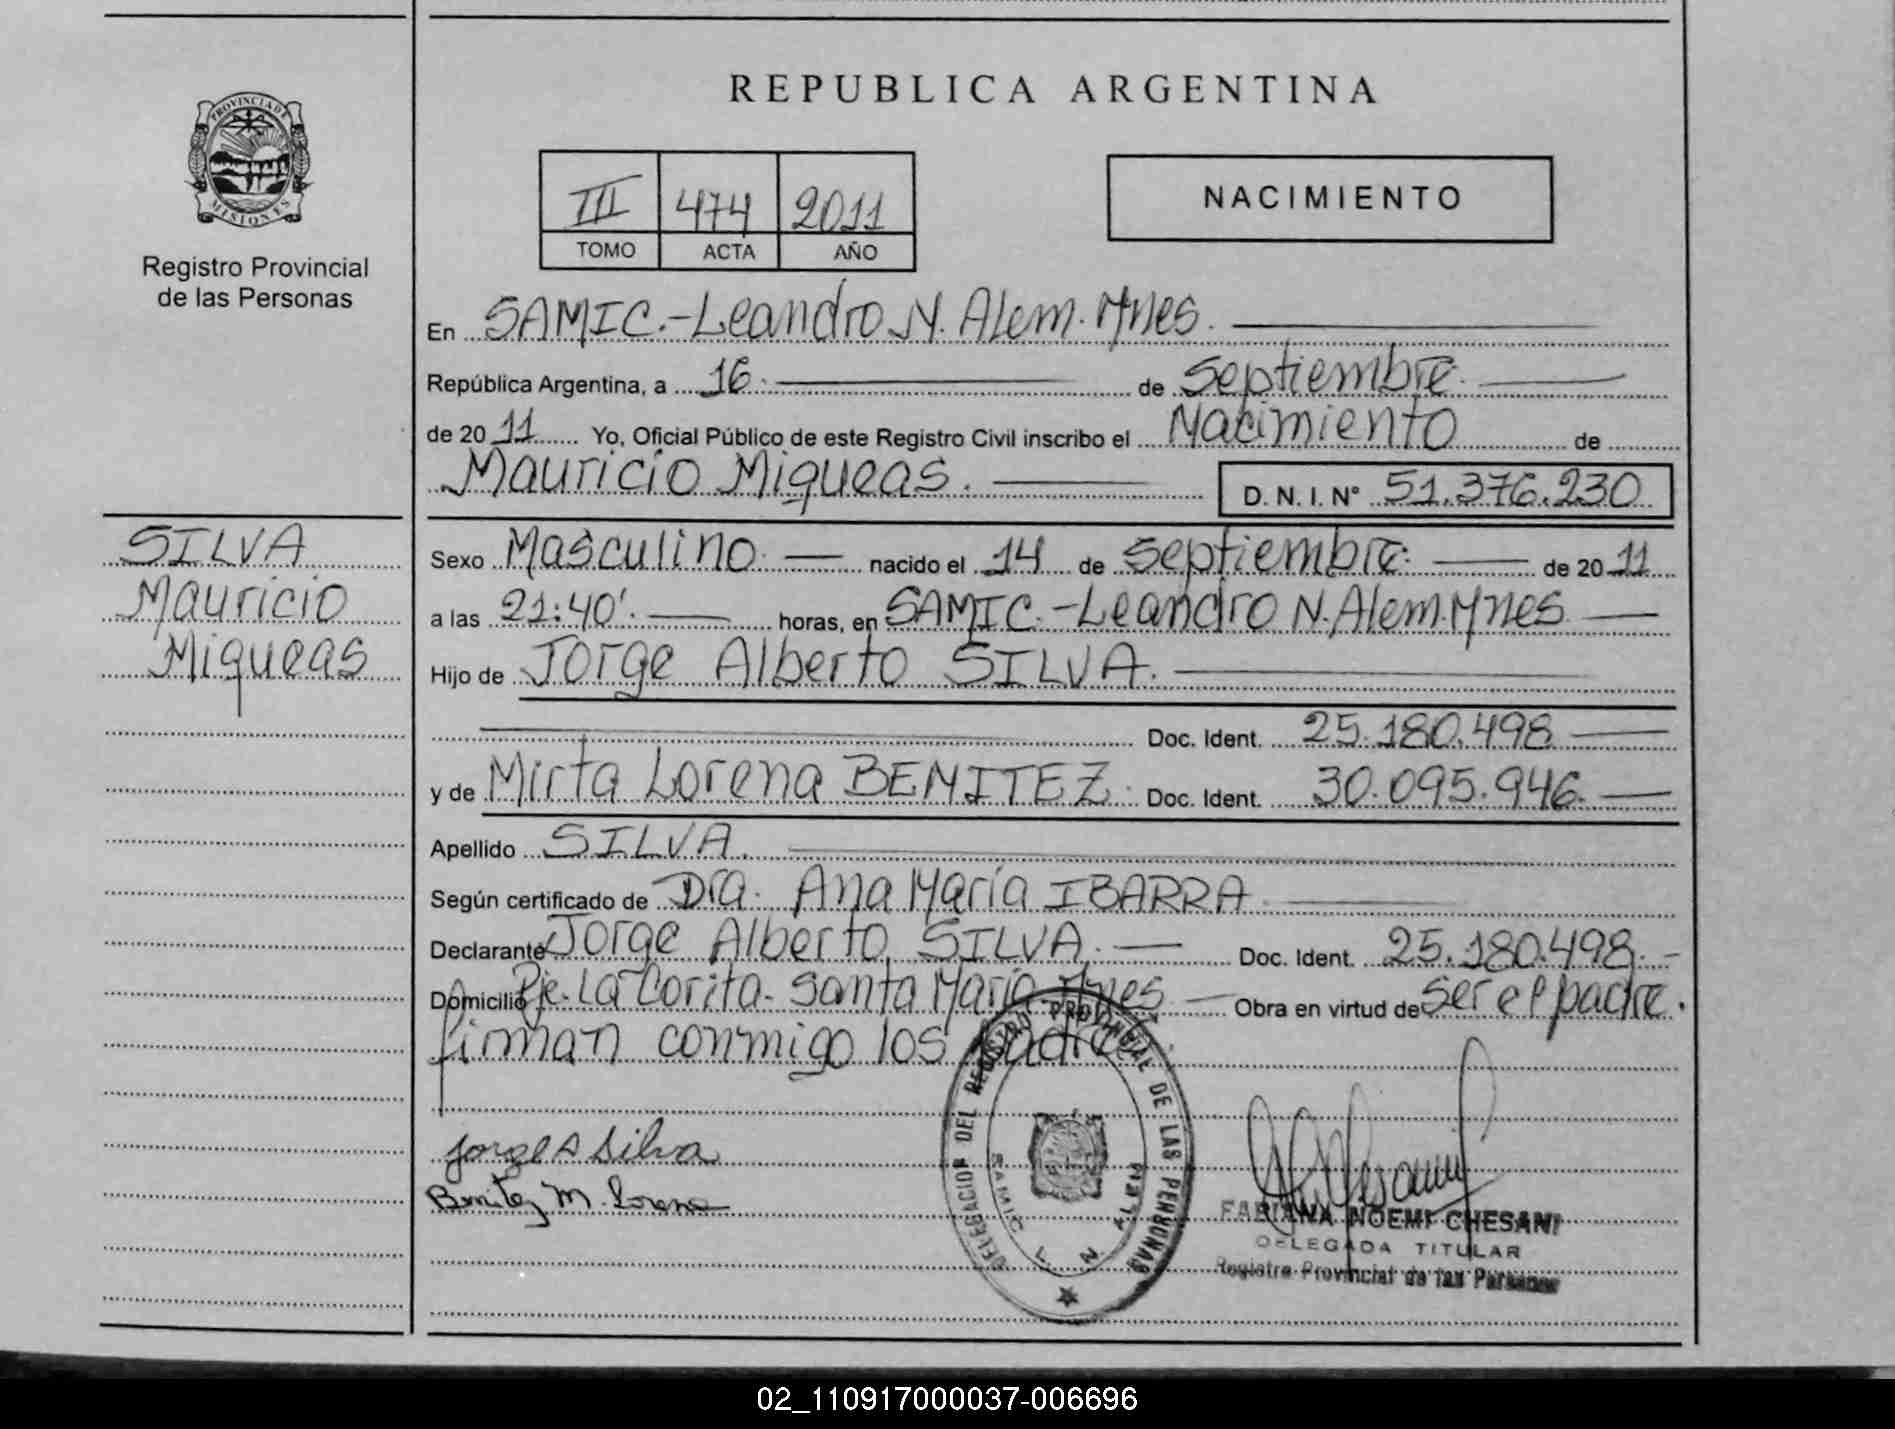 REPUBLICA ARGENTINA
PROVINCIA DE
MISIONES
Registro Provincial
de las Personas
III 474 2011
TOMO ACTA AÑO
NACIMIENTO
En SAMIC.-Leandro N. Alem. Mnes.
República Argentina, a 16. de Septiembre.
de 2011 Yo, Oficial Público de este Registro Civil inscribo el Nacimiento de
Mauricio Miqueas. D. N. I. N° 51.376.230
SILVA
Mauricio
Miqueas
Sexo Masculino. nacido el 14 de Septiembre. de 2011
a las 21:40'. horas, en SAMIC.-Leandro N. Alem. Mnes
Hijo de Jorge Alberto SILVA.
Doc. Ident. 25.180.498
y de Mirta Lorena BENITEZ. Doc. Ident. 30.095.946.
Apellido SILVA.
Según certificado de Dra. Ana María IBARRA
Declarante Jorge Alberto SILVA. Doc. Ident. 25.180.498.-
Domicilio Pje. La Corita- Santa María Mnes Obra en virtud de ser el padre.
firman conmigo los Padres.
Jorge A Silva
Benitez M. Lorena
DELEGACION DEL REGISTRO PROVINCIAL DE LAS PERSONAS
SAMIC L. N. ALEM
FABIANA NOEMI CHESANI
DELEGADA TITULAR
Registro Provincial de las Personas
02_110917000037-006696